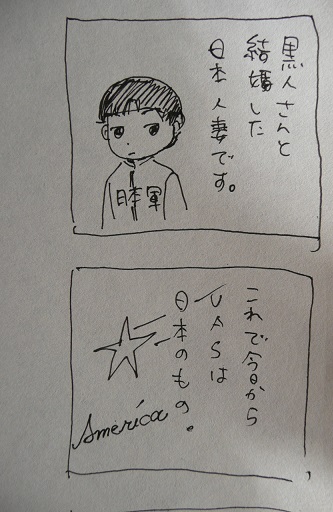 黒人さんと
結婚した
日本人妻です。
日本軍
これで今日から
UASは
日本のもの。
América